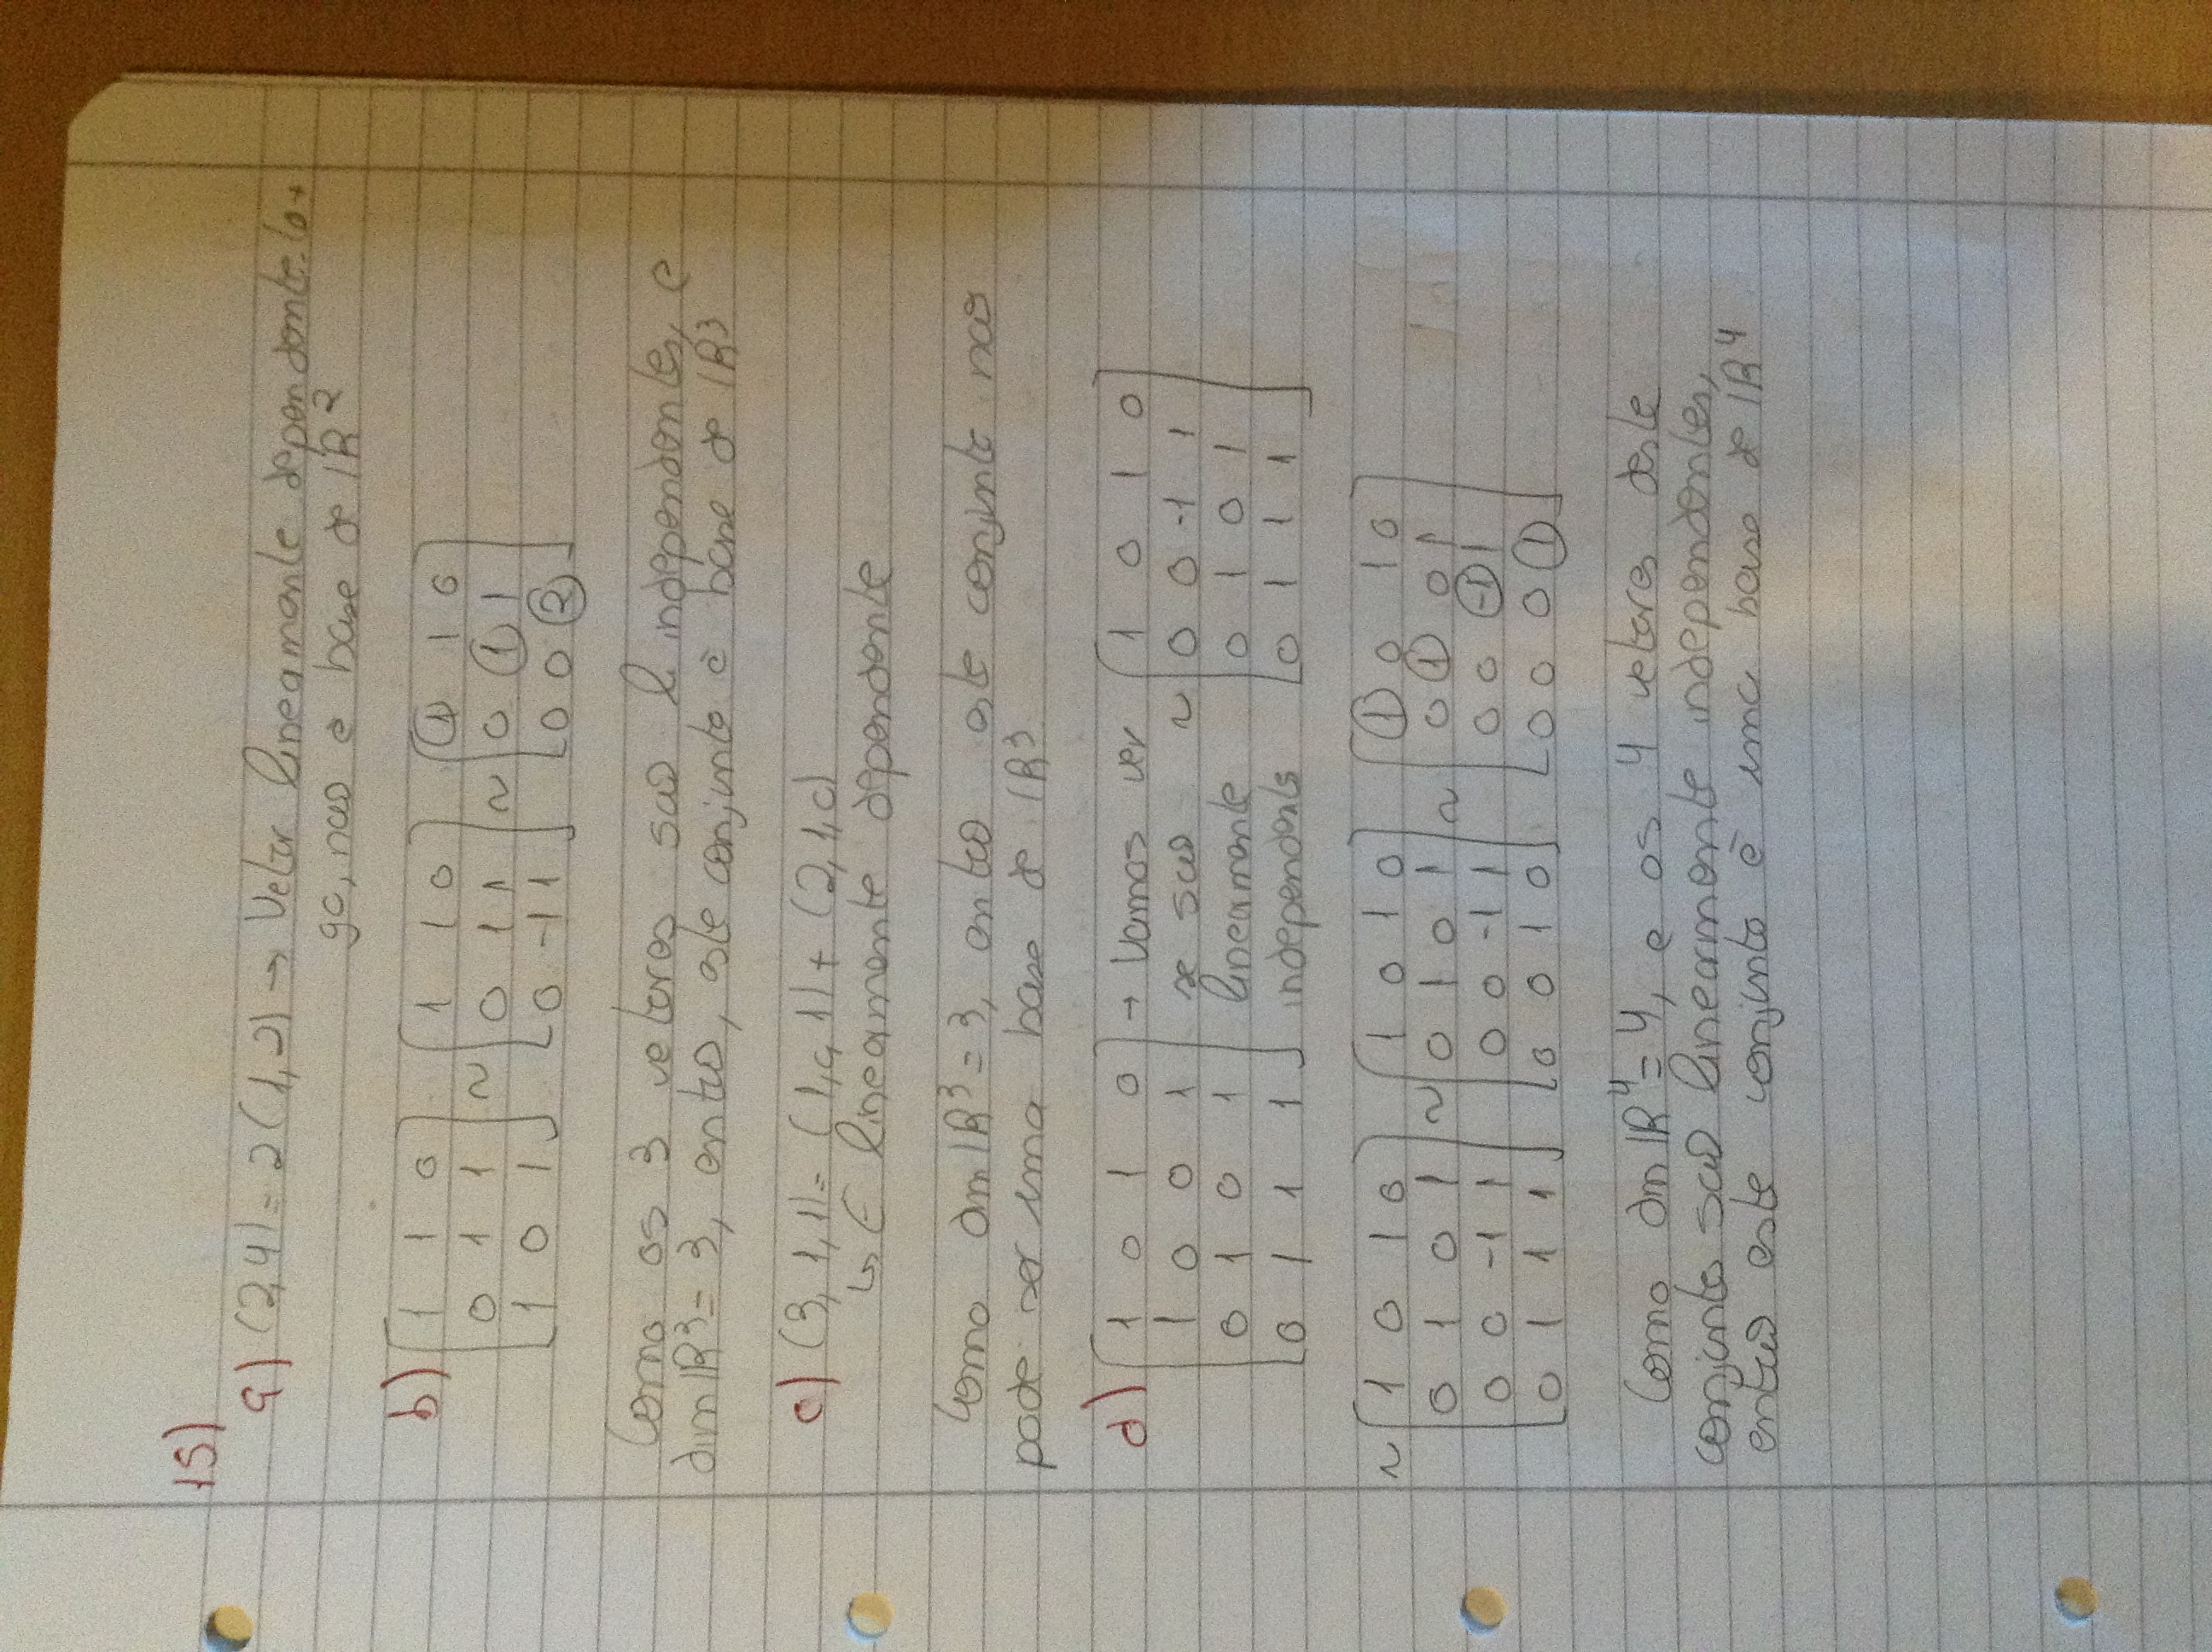 15)
a) (2,4) = 2(1,2) → Vetor lineamente dependente. Lo-
go, não é base de IR²
b) [1 1 0; 0 1 1; 1 0 1] ~ [1 1 0; 0 1 1; 0 -1 1] ~ [1 1 0; 0 1 1; 0 0 2]
Como os 3 vetores são l independentes, e
dim IR³ = 3, então, este conjunto é base de IR³
c) (3, 1, 1) = (1, 0, 1) + (2, 1, 0)
↳ É linearmente dependente
Como dim IR³ = 3, então este conjunto não
pode ser uma base de IR³
d) [1 0 1 0; 1 0 0 1; 0 1 0 1; 0 1 1 1] → Vamos ver se são linearmente independentes ~ [1 0 1 0; 0 0 -1 1; 0 1 0 1; 0 1 1 1]
~ [1 0 1 0; 0 1 0 1; 0 0 -1 1; 0 1 1 1] ~ [1 0 1 0; 0 1 0 1; 0 0 -1 1; 0 0 1 0] ~ [1 0 1 0; 0 1 0 1; 0 0 -1 1; 0 0 0 1]
Como dim IR⁴ = 4, e os 4 vetores deste
conjunto são linearmente independentes,
então este conjunto é uma base de IR⁴